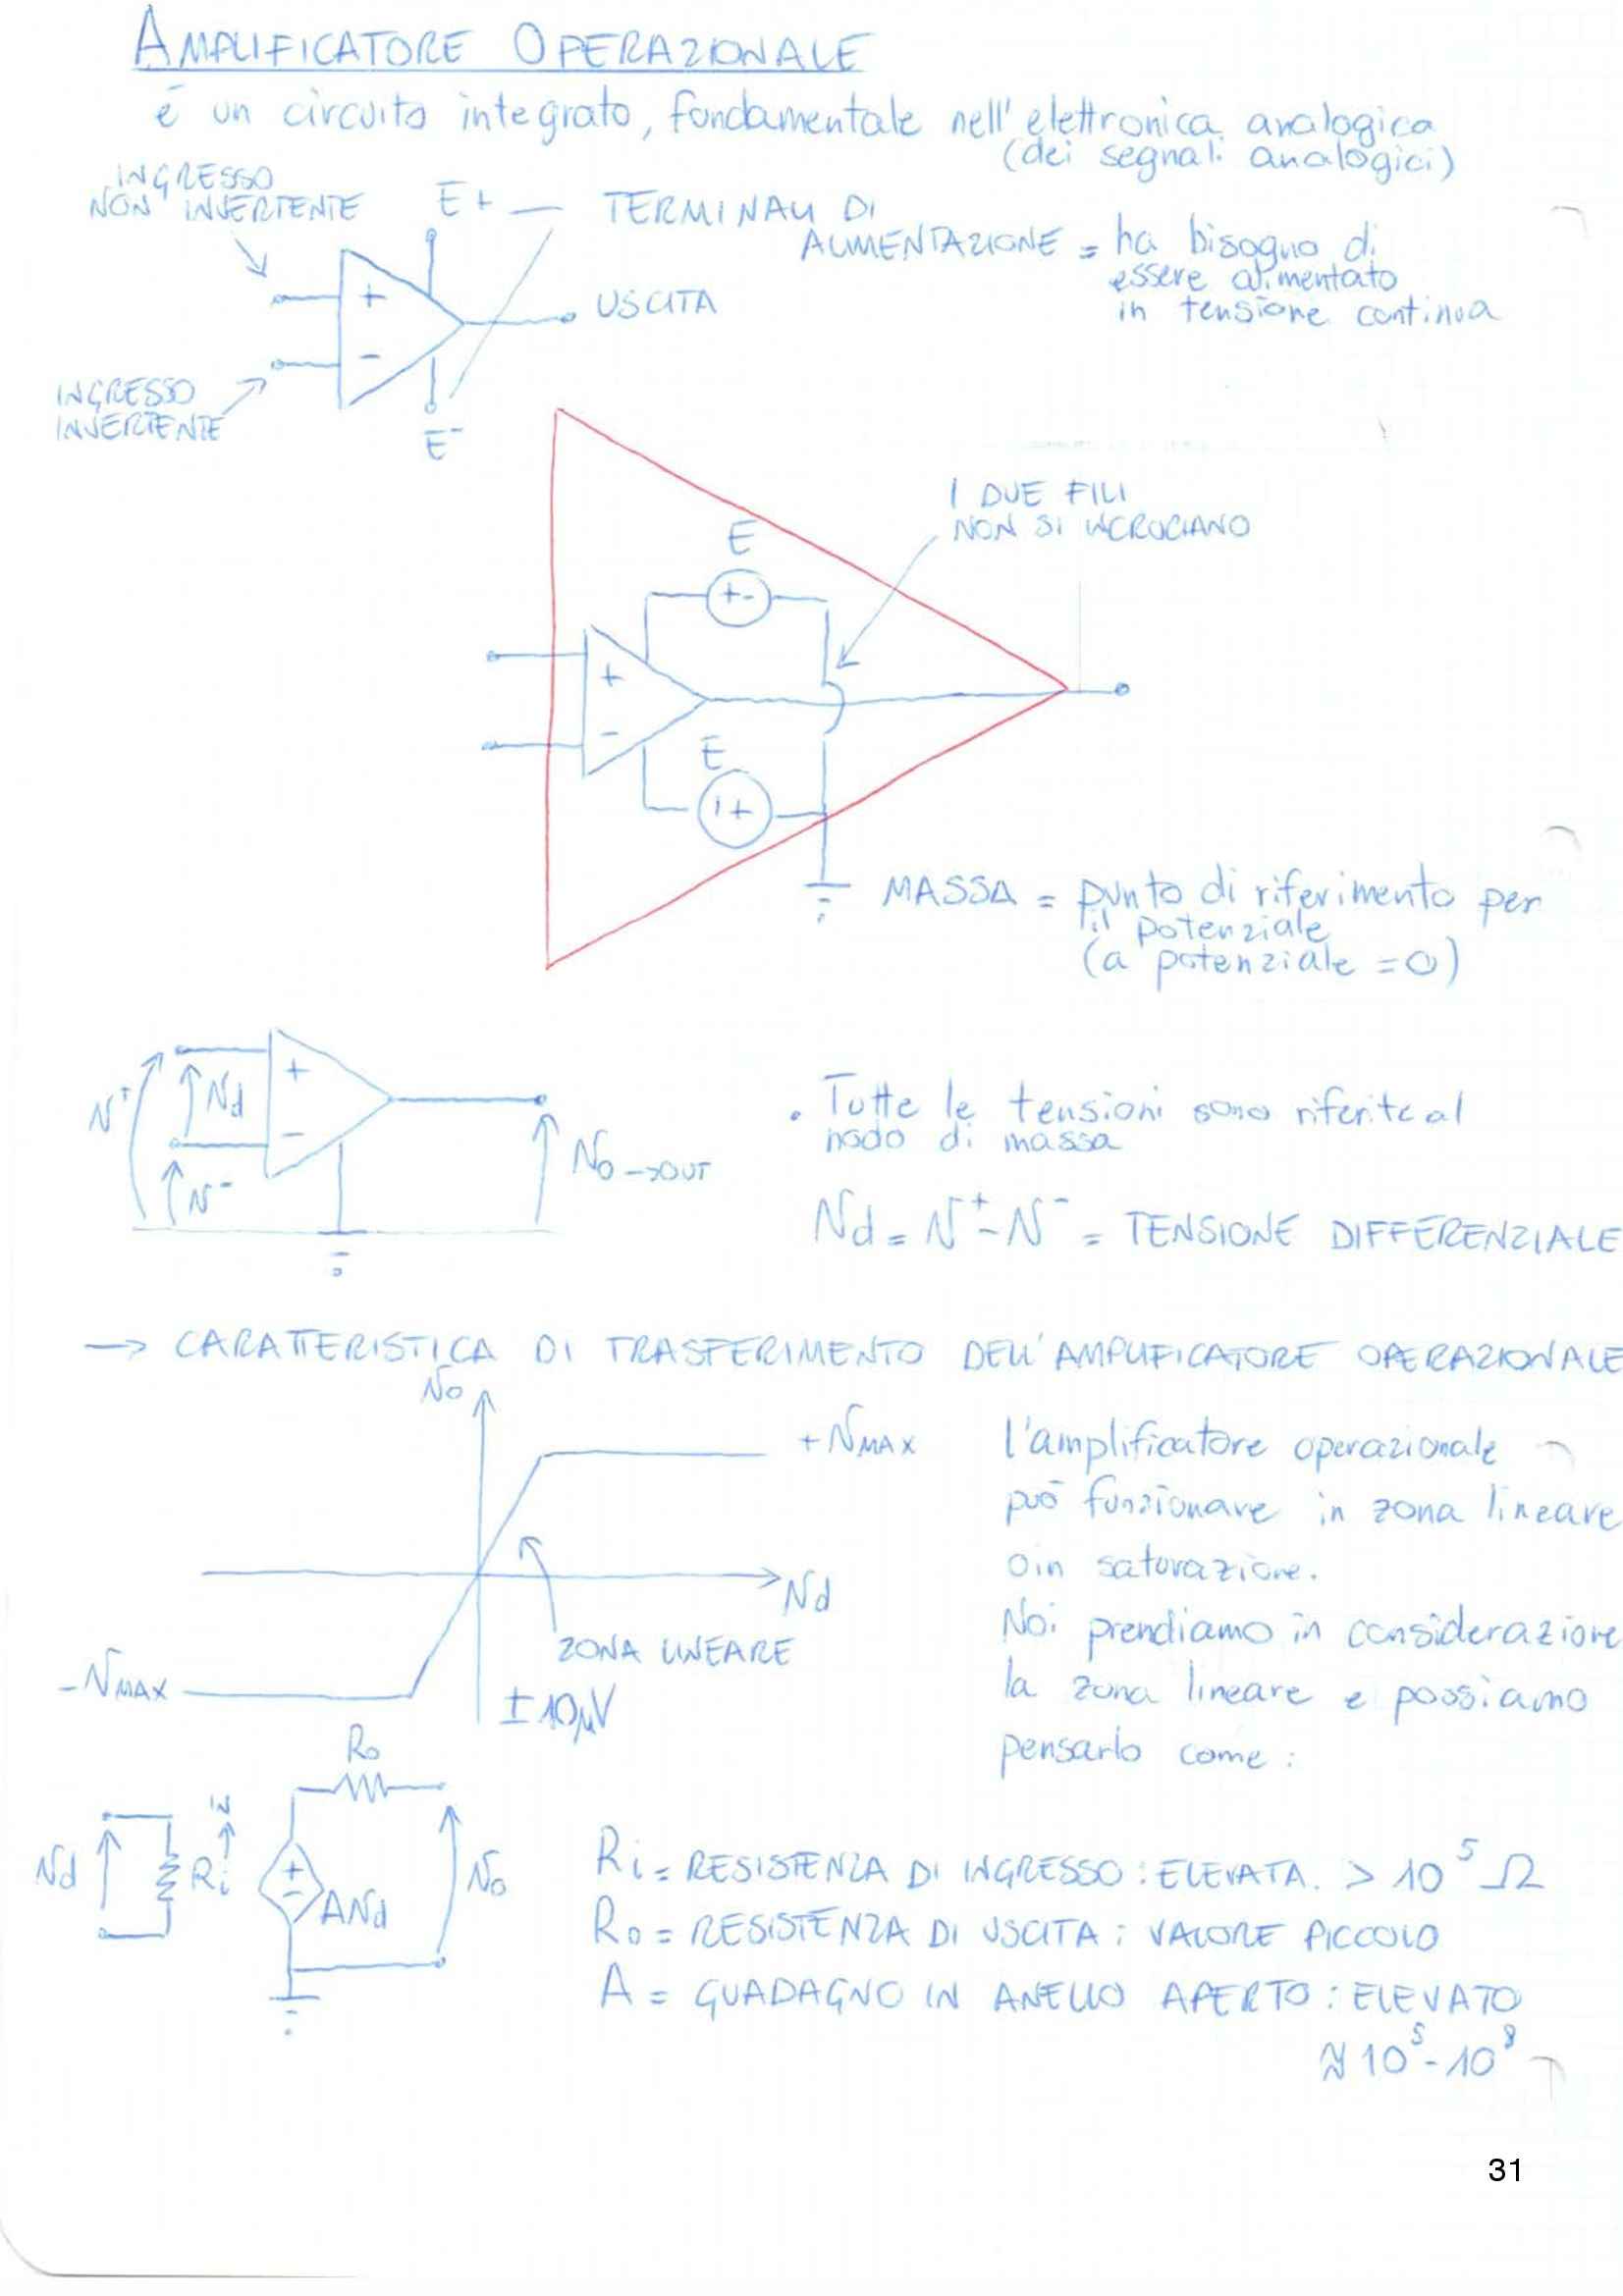 AMPLIFICATORE OPERAZIONALE
è un circuito integrato, fondamentale nell' elettronica analogica
(dei segnali analogici)
INGRESSO
NON INVERTENTE
E+
TERMINALI DI
ALIMENTAZIONE = ha bisogno di
essere alimentato
in tensione continua
+
USCITA
-
INGRESSO
INVERTENTE
E-
I DUE FILI
NON SI INCROCIANO
E
+ -
+
-
E
- +
MASSA = punto di riferimento per
il potenziale
(a potenziale = 0)
v+
vd
+
-
v-
vo → OUT
• Tutte le tensioni sono riferite al
nodo di massa
vd = v+ - v- = TENSIONE DIFFERENZIALE
→ CARATTERISTICA DI TRASFERIMENTO DELL'AMPLIFICATORE OPERAZIONALE
vo
+ vMAX
l'amplificatore operazionale
può funzionare in zona lineare
o in saturazione.
vd
Noi prendiamo in considerazione
ZONA LINEARE
- vMAX
la zona lineare e possiamo
± 10μV
pensarlo come :
Ro
IN
vd
Ri
+
-
Avd
vo
Ri = RESISTENZA DI INGRESSO : ELEVATA. > 10^5 Ω
Ro = RESISTENZA DI USCITA : VALORE PICCOLO
A = GUADAGNO IN ANELLO APERTO : ELEVATO
≈ 10^5 - 10^8
31